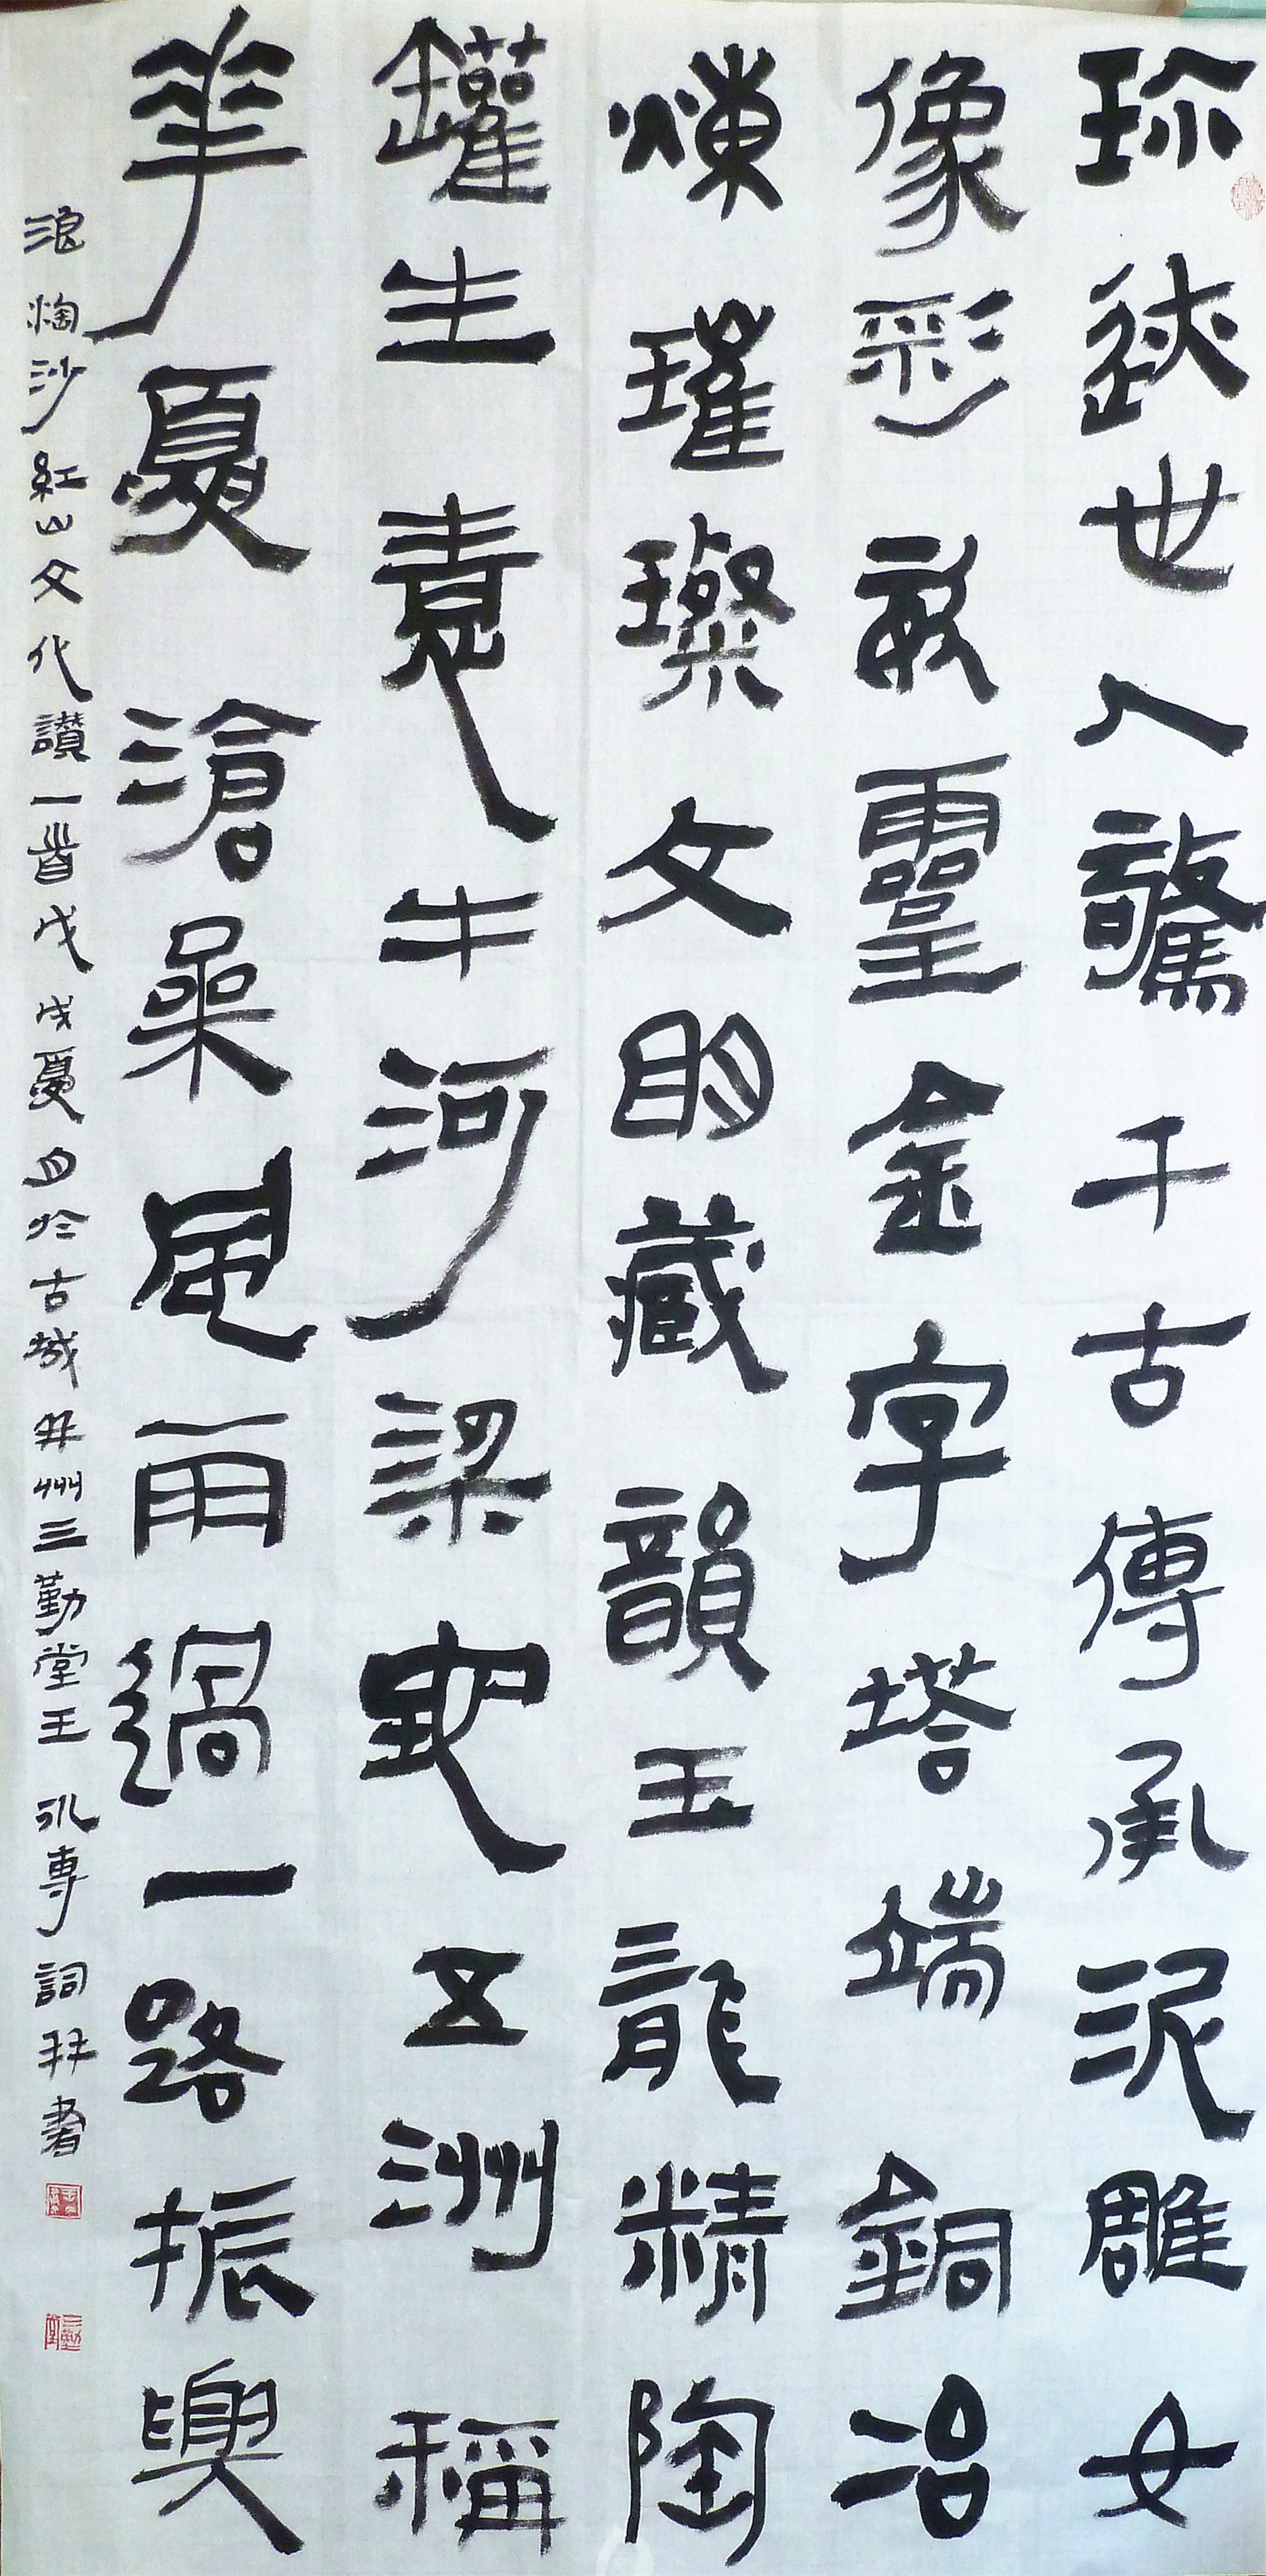 珎迭世人驚千古傳承泥雕女
像彩敷靈金字塔端銅冶
煉璀璨文明藏韻玉龍精陶
罐生意牛河梁興五洲稱
華夏滄桑風雨過一路振興
浪陶沙紅山文化讚一首戊戌夏月於古城並州三勤堂王永專詞林書